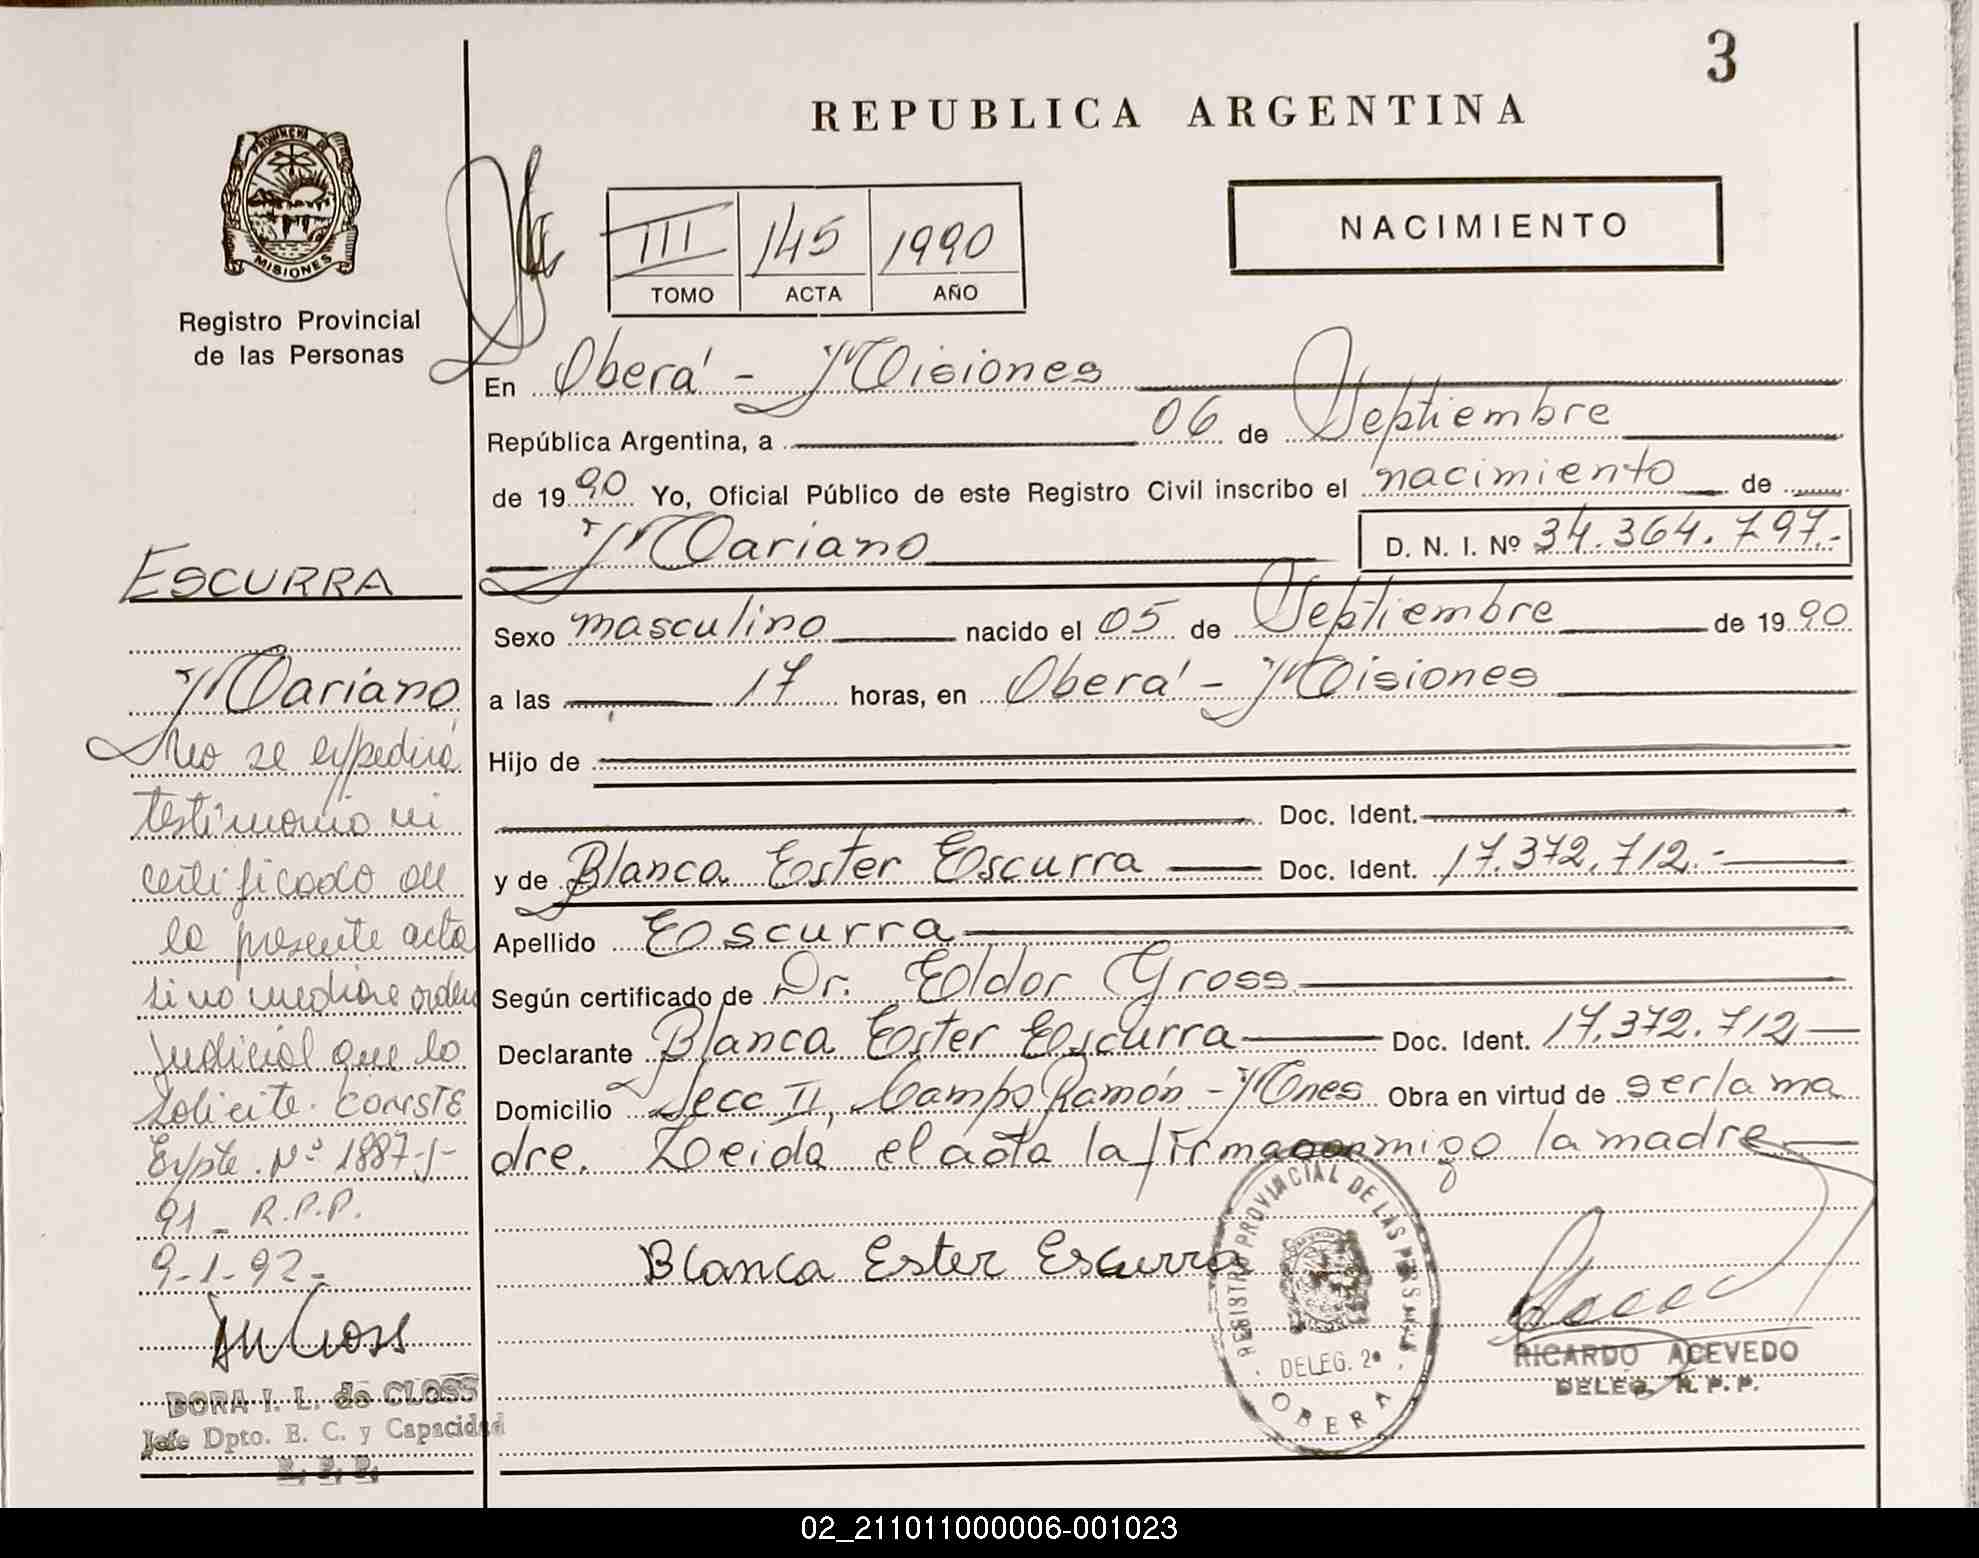 3
REPUBLICA ARGENTINA
PROVINCIA DE
MISIONES
Registro Provincial
de las Personas
III 145 1990
TOMO ACTA AÑO
NACIMIENTO
En Oberá - Misiones
República Argentina, a 06 de Septiembre
de 1990 Yo, Oficial Público de este Registro Civil inscribo el nacimiento de
Mariano D. N. I. Nº 34.364.797.-
Sexo masculino nacido el 05 de Septiembre de 1990
a las 17 horas, en Oberá - Misiones
Hijo de
Doc. Ident.
y de Blanca Ester Escurra Doc. Ident. 17.372.712.-
Apellido Escurra
Según certificado de Dr. Eldor Gross
Declarante Blanca Ester Escurra Doc. Ident. 17.372.712
Domicilio Secc II, Campo Ramón - Mnes Obra en virtud de ser la ma
dre. Leída el acta la firma conmigo la madre
Blanca Ester Escurra
REGISTRO PROVINCIAL DE LAS PERSONAS
DELEG. 2ª
OBERA
RICARDO ACEVEDO
DELEG. R. P. P.
ESCURRA
Mariano
No se expedirá
testimonio ni
certificado de
la presente acta
sino mediare orden
judicial que lo
solicite. CONSTE
Expte. Nº 1887-J-
91 - R.P.P.
9-1-92-
DORA I. L. de CLOSS
Jefe Dpto. E. C. y Capacidad
R. P. P.
02_211011000006-001023